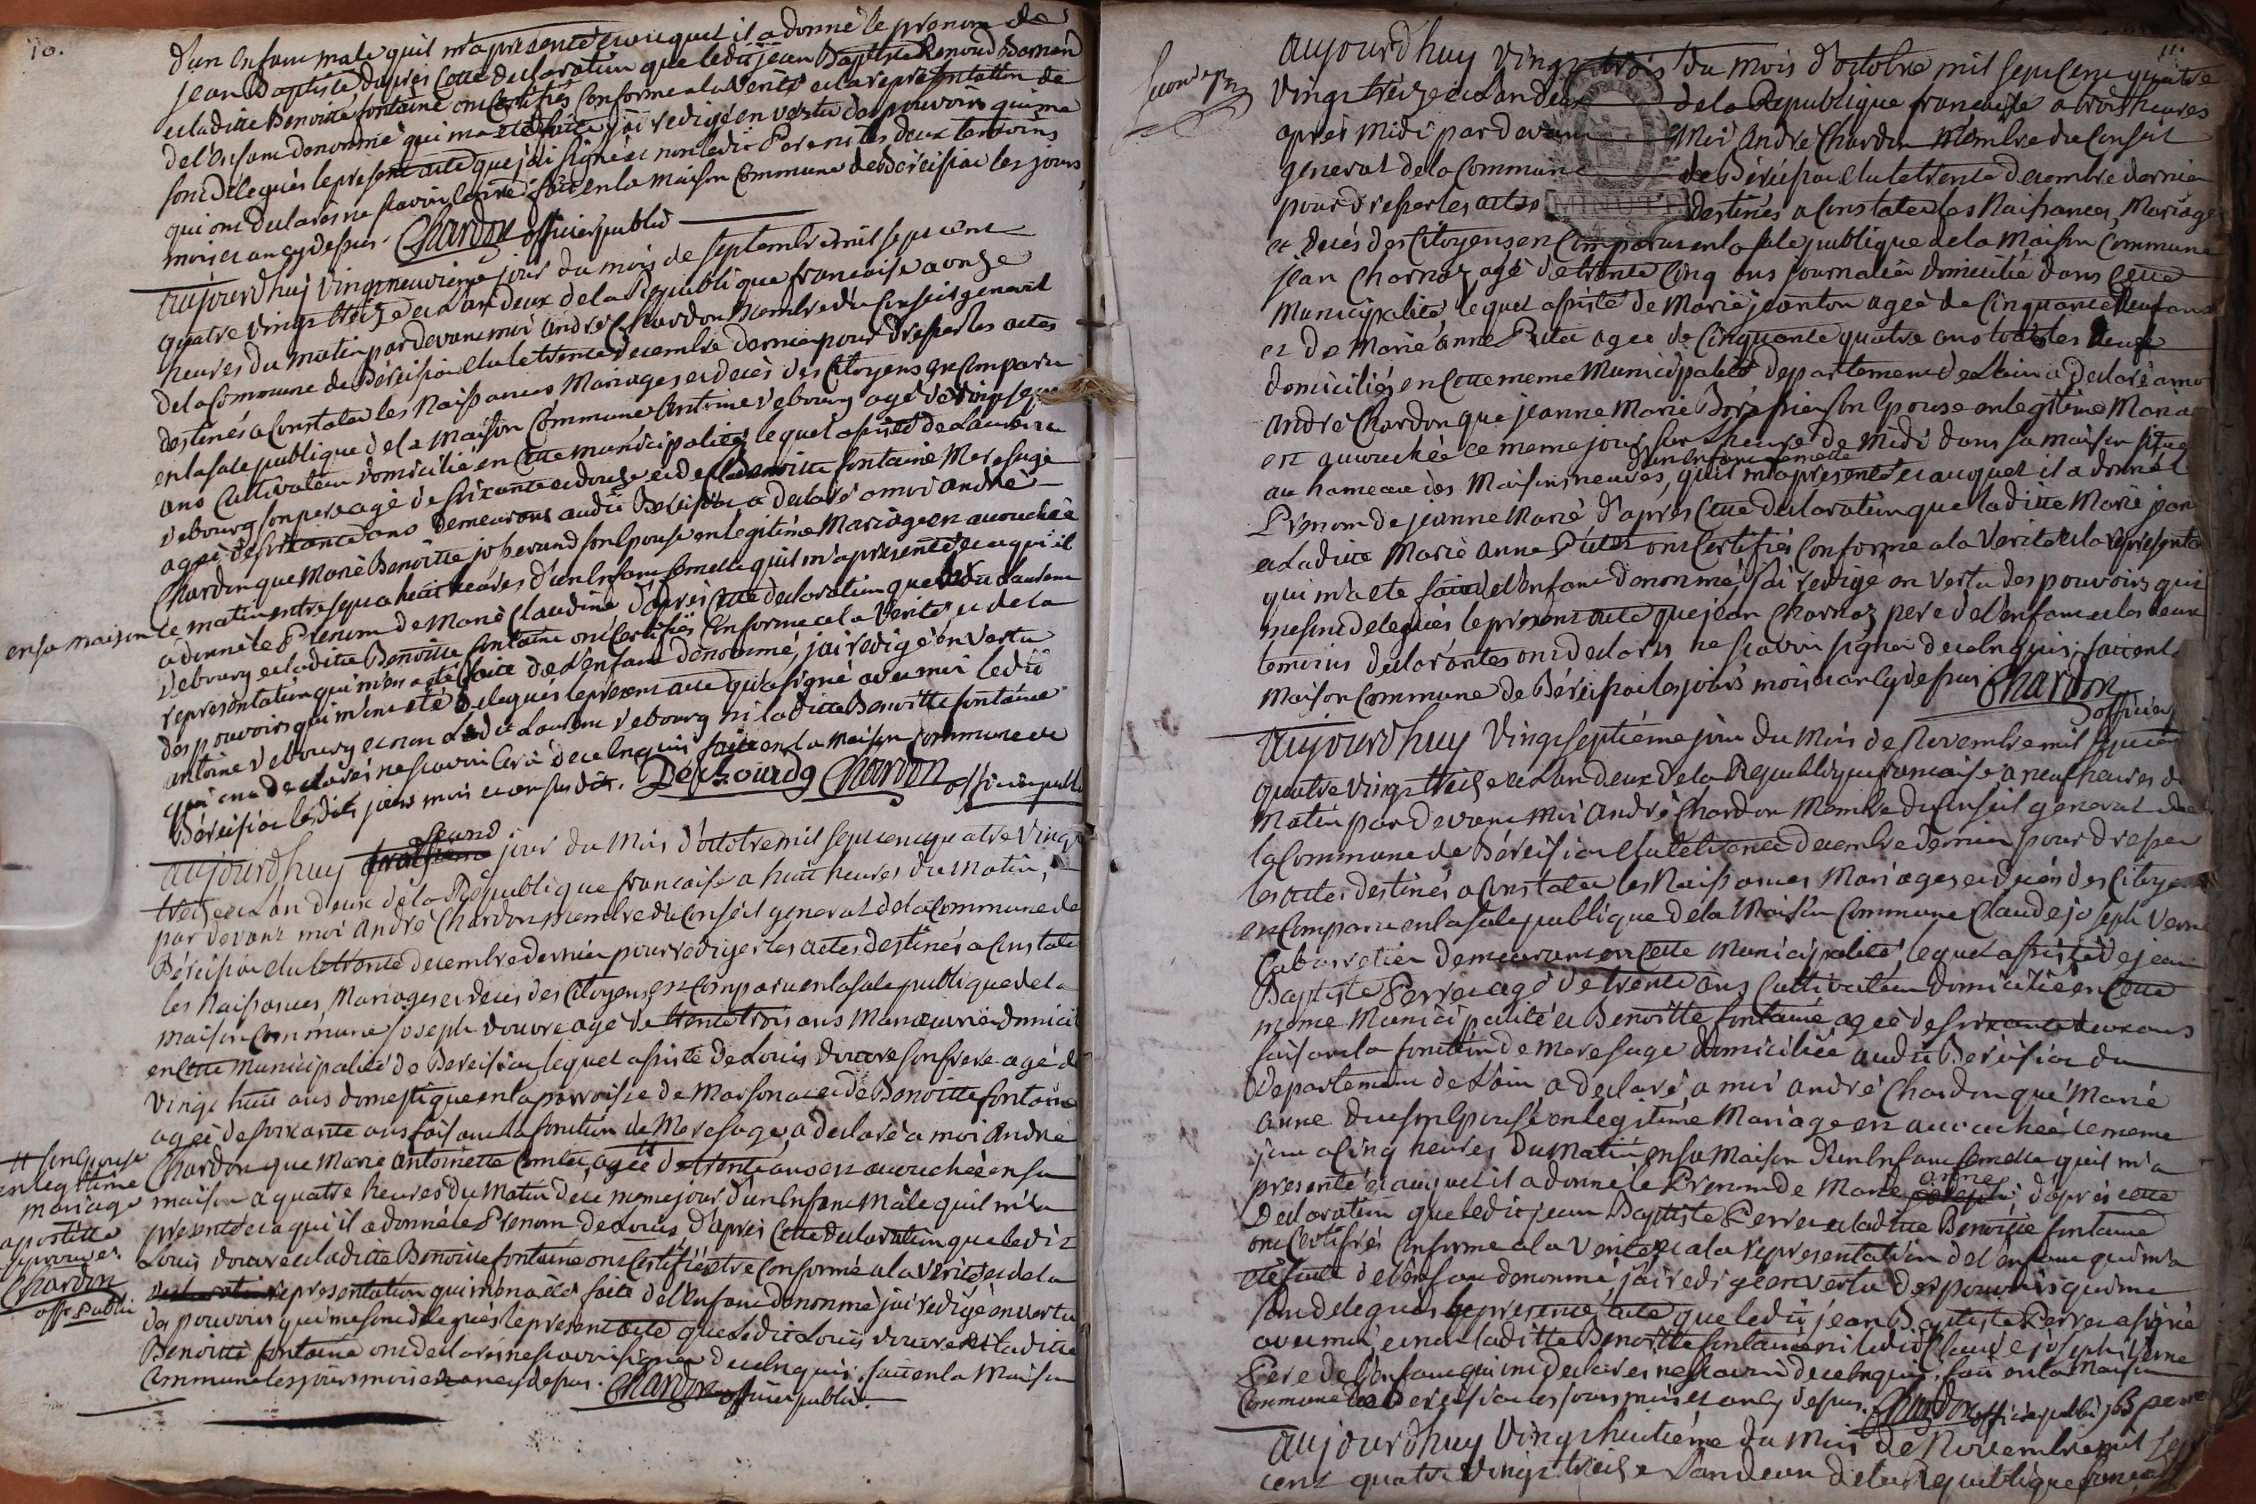 10.
d'un enfant male quil m'a presenté et auquel il a donné le prenom de
jean Baptiste d'apres cette declaration que ledit jean Baptiste Renoud
et la ditte Benoitte fontaine ont certifiés conforme a la verité et la representation
de l'enfant denommé qui m'a été faite j'ai redigé en vertu des pouvoirs qui me
sont délegués le present acte que j'ai signé et non ledit ni les deux temoins
qui ont declarés ne scavoir faitte en la maison commune de Béreisiac les jours
mois et an cy dessus. Chardon officier public
aujourdhuy vingt neuvieme jour du mois de septembre mil sept cent
quatre vingt treize et l'an deux de la Republique francaise a onze
heures du matin par devant moi andré Chardon Membre du Conseil general
de la Commune de Béreisiac élu le trente decembre dernier pour dresser les actes
destinés a Constater les Naissances Mariages et decès des Citoyens est Comparu
en la sale publique de la Maison Commune Antoine Debourg agé de vingt sept
ans Cultivateur domicilié en cette municipalité, lequel assisté de Laurent
Debourg son pere agé de soixante et douze et de Benoitte fontaine Mere sage
agée de soixante ans demeurans audit Béreisiac a declaré a moi andré
Chardon que Marie Benoitte son Epouse en legitime Mariage est accouchée
en sa maison
ce matin entre sept a huit heures, d'un enfant femelle quil m'a presenté et a qui il
a donné le Prenom de Marie Claudine d'apres cette declaration que ledit Laurent
Debourg et la ditte Benoitte fontaine ont certifiés conforme a la verité et de la
representation qui m'en a été faite de l'enfant denommé, j'ai redigé en vertu
des pouvoirs qui m'ont été delegués le present acte qu'a signé avec moi ledit
antoine Debourg et non ledit Laurent Debourg ni la ditte Benoitte fontaine
qui ont declarés ne scavoir de ce enquis faitte en la maison commune de
Béreisiac lesdits jours mois et an susdits. Debourg Chardon officier public
second
aujourdhuy troisieme jour du Mois d'octobre mil sept cent quatre vingt
treize et L'an deux de la Republique francaise a huit heures du matin,
par devant moi andré Chardon membre du Conseil general de la Commune de
Béreisiac élu le trente decembre dernier pour rediger les actes destinés a Constater
les Naissances, Mariages et decès des Citoyens est Comparu en la sale publique de la
maison Commune joseph douvre agé de trente trois ans Manoeuvrier domicilié
en cette Municipalité de Bereisiac lequel assisté de Louis douvre son frere agé de
vingt huit ans domestique en la parroisse de Marsonas et de Benoitte fontaine
agée de soixante ans faisant la fonction de Mere sage, a declaré a moi andré
Chardon que Marie antoinette Comte, agée de trente ans est accouchée en sa
# son Epouse
en legitime
mariage
apostille
approuvée.
Chardon
off. Public
maison a quatre heures du Matin de ce meme jour d'un Enfant Male quil m'a
presenté et a qui il a donné le Prenom de Louis, d'apres cette declaration que ledit
Louis douvre et la ditte Benoitte fontaine ont certifié etre conforme a la verité et de la
representation qui m'en a été faite de l'enfant denommé j'ai redigé en vertu
des pouvoirs qui me sont delegués le present acte que ledit Louis douvre et la ditte
Benoitte fontaine ont declarés ne scavoir signer de ce enquis. fait en la Maison
Commune les jours mois et an cy dessus. Chardon officier public.
11.
aujourdhuy vingt trois du mois d'octobre mil sept cent quatre
vingt treize et L'an deux de la Republique francaise a trois heures
apres midi par devant Moi André Chardon Membre du Conseil
general de la Commune de Béreisiac élu le trente decembre dernier
MINUTE
pour dresser les actes destinés a Constater les Naissances, Mariages
et decès des Citoyens est Comparu en la sale publique de la Maison Commune
jean Charnaz agé de trente cinq ans journalier domicilié dans cette
Municipalité, lequel assisté de Marie jeanton agée de Cinquante neuf ans
et de Marie anne Putet agée de Cinquante quatre ans toutes les deux
domiciliés en cette meme Municipalité departement de L'ain a declaré a moi
andré Chardon que jeanne Marie son Epouse en legitime Mariage
est accouchée ce meme jour sur L'heure de Midi dans sa maison situé
d'un enfant femelle
au hameau des Maisons neuves, quil m'a presenté et auquel il a donné le
Prenom de jeanne Marie d'apres cette declaration que la ditte Marie jean
et la ditte Marie anne Putet ont certifiés conforme a la verité et la representa
qui m'a été faitte de l'enfant denommé, j'ai redigé en vertu des pouvoirs qui
me sont delegués le present acte que jean Charnaz pere de l'enfant et les deux
temoins declarantes ont declarés ne scavoir signer de ce enquis, fait en la
Maison Commune de Béreisiac les jours mois et an cy dessus Chardon
officier
aujourdhuy vingt septiéme jour du Mois de Novembre mil sept cent
quatre vingt treize et L'an deux de la Republique francaise a neuf heures du
Matin par devant Moi André Chardon Membre du Conseil general de
la Commune de Béreisiac élu le trente decembre dernier pour dresser
les actes destinés a Constater les Naissances Mariages et decès des Citoyens
est Comparu en la sale publique de la Maison Commune Claude joseph Verne
Cabaretier demeurant en cette Municipalité, lequel assisté de jean
Baptiste Perret agé de trente ans Cultivateur domicilié en cette
meme Municipalité et Benoitte fontaine agée de soixante deux ans
faisant la fonction de Mere sage domiciliée audit Béreisiac du
departement de L'ain a declaré a moi andré Chardon que Marie
anne son Epouse en legitime Mariage est accouchée le meme
jour a Cinq heures du Matin en sa Maison d'un enfant femelle quil m'a
anne
presenté et auquel il a donné le Prenom de Marie d'apres cette
declaration que ledit jean Baptiste Perret et la ditte Benoitte fontaine
ont certifiés conforme a la verité et a la representation de l'enfant qui m'a
été faite de l'enfant denommé, j'ai redigé en vertu des pouvoirs qui me
sont delegués le present acte que ledit jean Baptiste Perret a signé
avec moi, et non la ditte Benoitte fontaine ni ledit Claude joseph Verne
Pere de l'enfant qui ont declarés ne scavoir de ce enquis, fait en la Maison
Commune de Bereisiac les jours mois et an cy dessus. Chardon officier public jB perret
aujourdhuy vingt huitiéme du Mois de Novembre mil sept
cent quatre vingt treize L'an deux de la Republique francaise